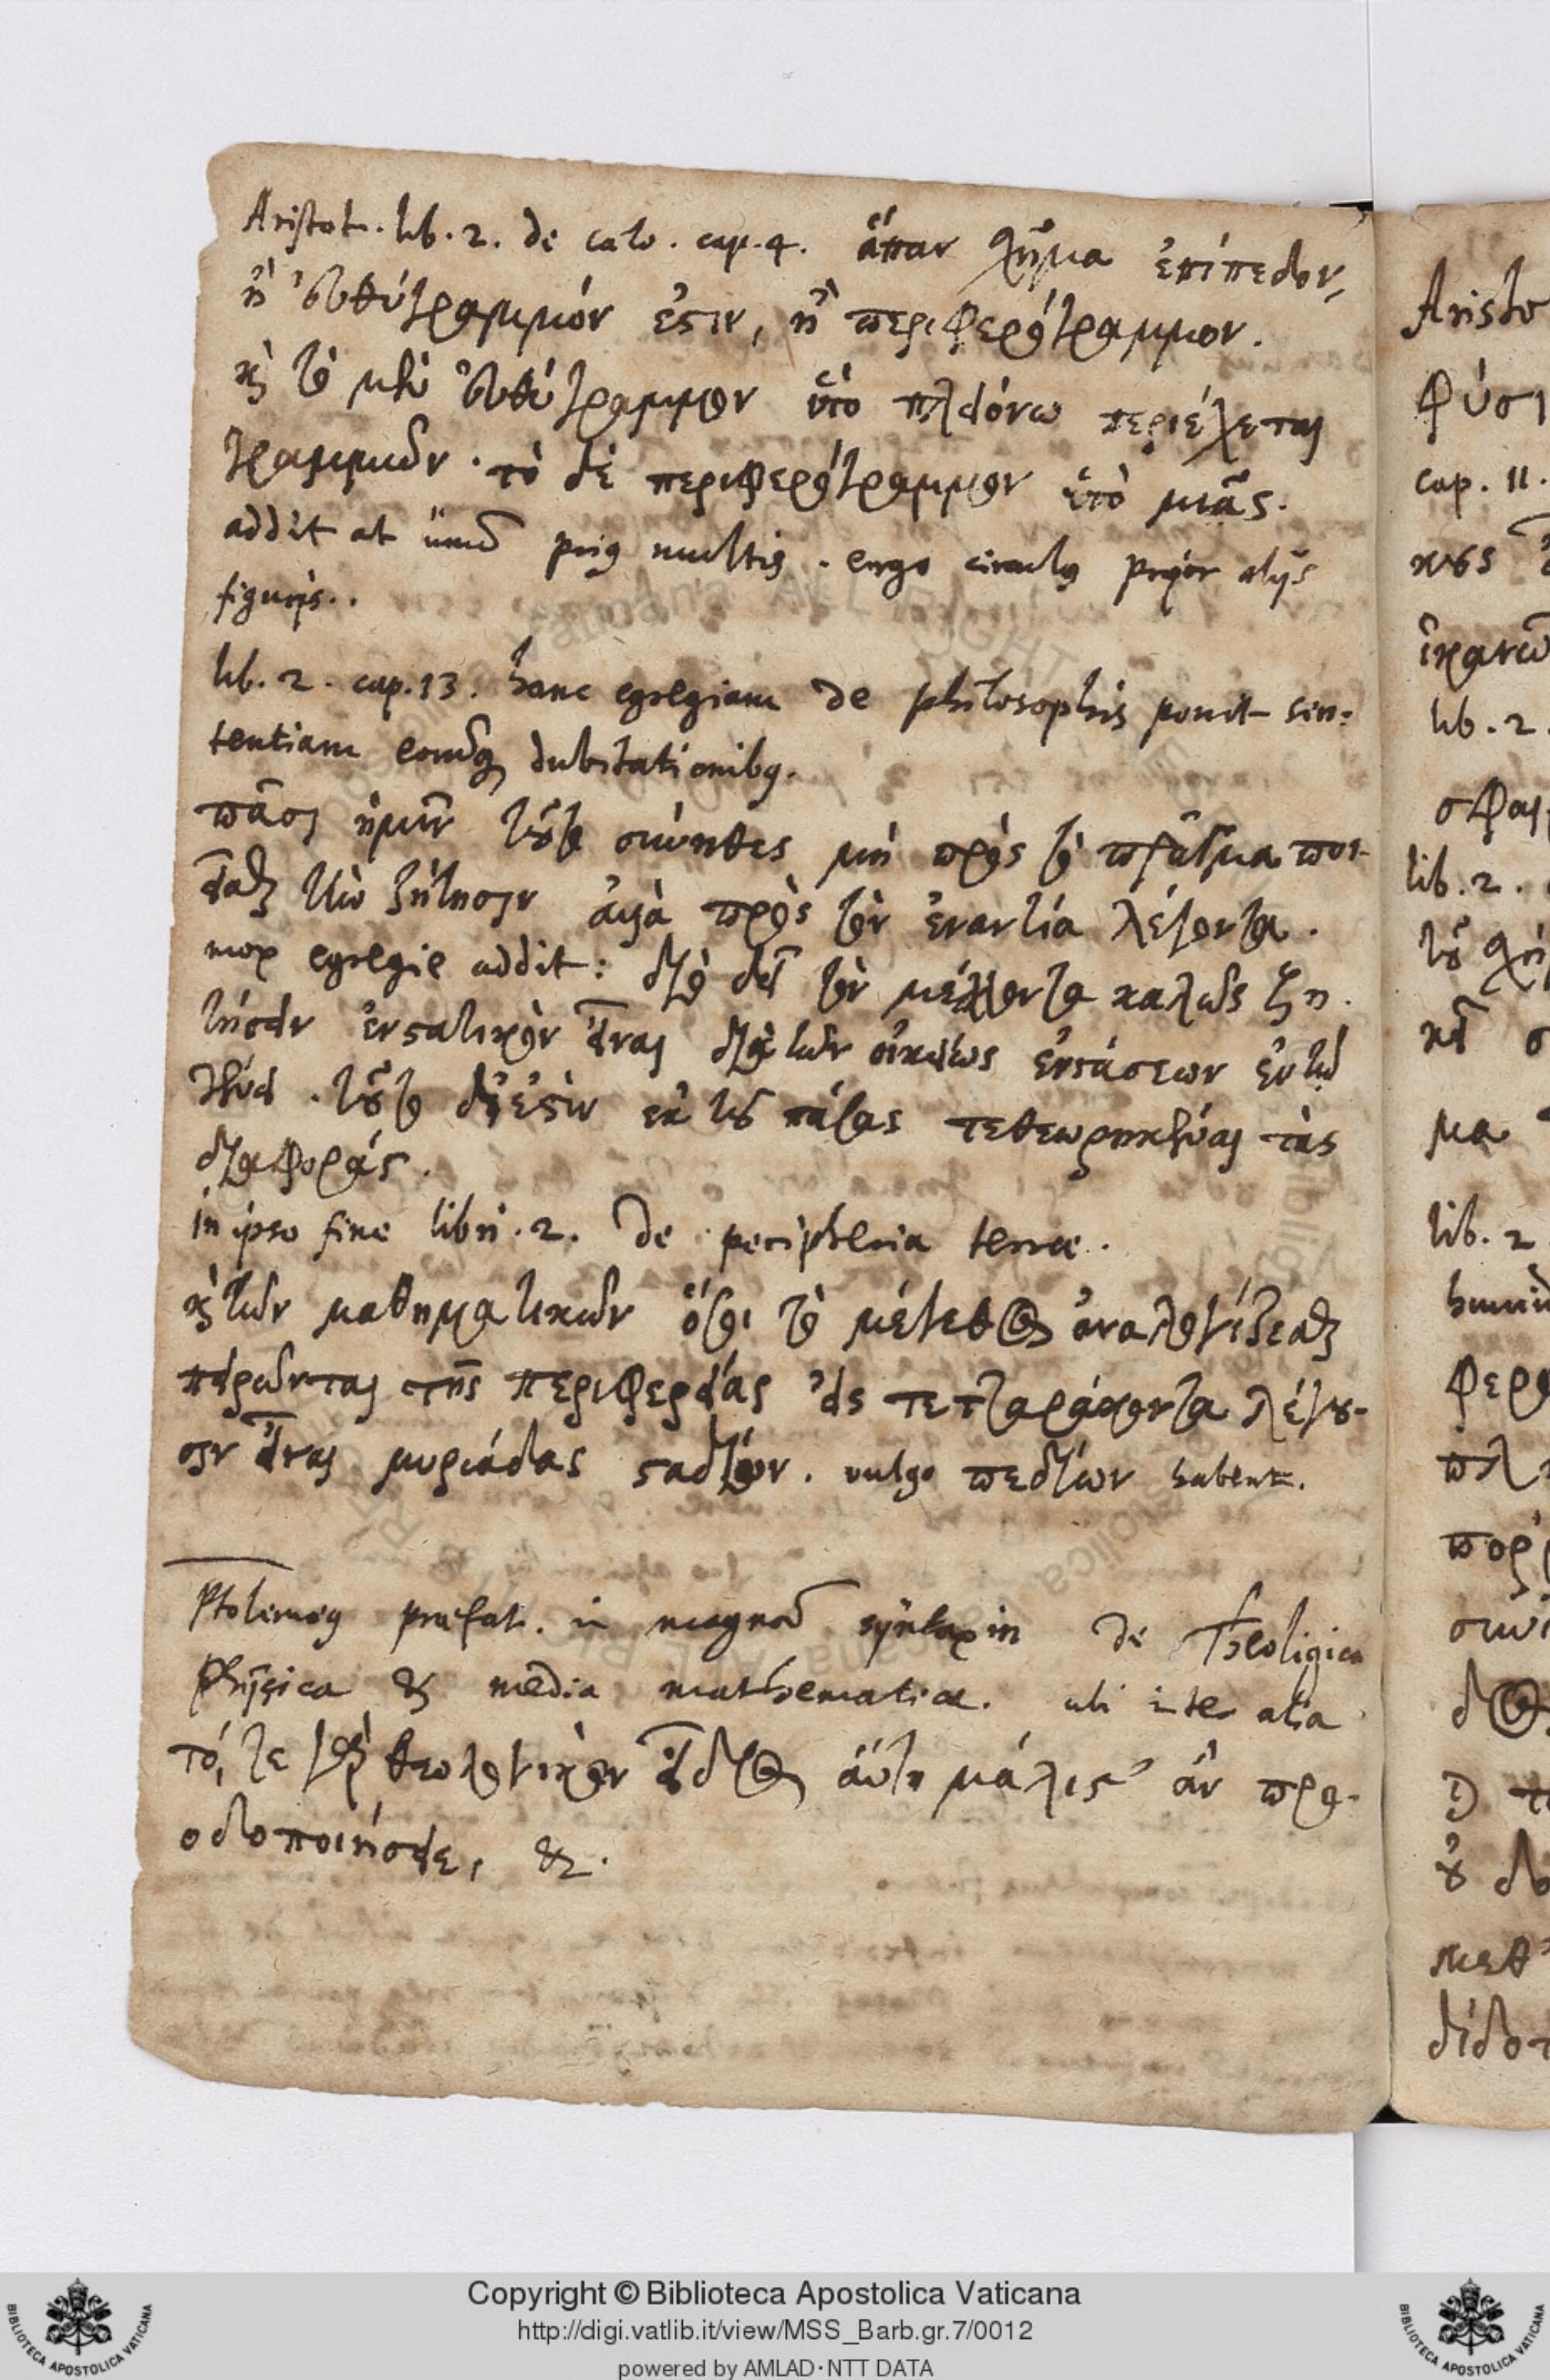 Aristot. lib. 2. de cælo. cap. 4. ἅπαν σχῆμα ἐπίπεδον,
ἢ εὐθύγραμμόν ἐστιν, ἢ περιφερόγραμμον.
καὶ τὸ μὲν εὐθύγραμμον ὑπὸ πλειόνων περιέχεται
γραμμῶν. τὸ δὲ περιφερόγραμμον ὑπὸ μιᾶς.
addit at unum prius multis. ergo circulus prior alijs
figuris..
lib. 2. cap. 13. hanc egregiam de philosophis ponit sen:
tentiam eorumque dubitationibus.
πᾶσι ἡμῖν τοῦτο σύνηθες μὴ πρὸς τὸ πρᾶγμα ποι-
εῖσθαι τὴν ζήτησιν ἀλλὰ πρὸς τὸν ἐναντία λέγοντα.
mox egregie addit: διὸ δεῖ τὸν μέλλοντα καλῶς ζη.
τήσειν ἐνστατικὸν εἶναι διὰ τῶν οἰκείων ἐνστάσεων ἐν τῷ
γένει. τοῦτο δὲ ἐστὶν ἐκ τοῦ πάσας τεθεωρηκέναι τὰς
διαφοράς.
in ipso fine libri. 2. de peripheria terræ.
καὶ τῶν μαθηματικῶν ὅσοι τὸ μέγεθος ἀναλογίζεσθαι
πειρῶνται τῆς περιφερείας εἰς τετταράκοντα λέγου-
σιν εἶναι μυριάδας σταδίων. vulgo πεδίων habent.
Ptolemæus præfat. in magnam syntaxin de Theologica
physica & media mathematica. ubi inter alia
τό, τε γὰρ θεολογικὸν εἶδος αὕτη μάλιστ' ἂν προ-
οδοποιήσειε, &.
Aristo
φύσι
cap. 11.
lib. 2.
σφαι
lib. 2.
μα
lib. 2
φερο
μεθ'
διδο
Copyright © Biblioteca Apostolica Vaticana
http://digi.vatlib.it/view/MSS_Barb.gr.7/0012
powered by AMLAD·NTT DATA
BIBLIOTECA APOSTOLICA VATICANA
BIBLIOTECA APOSTOLICA VATICANA